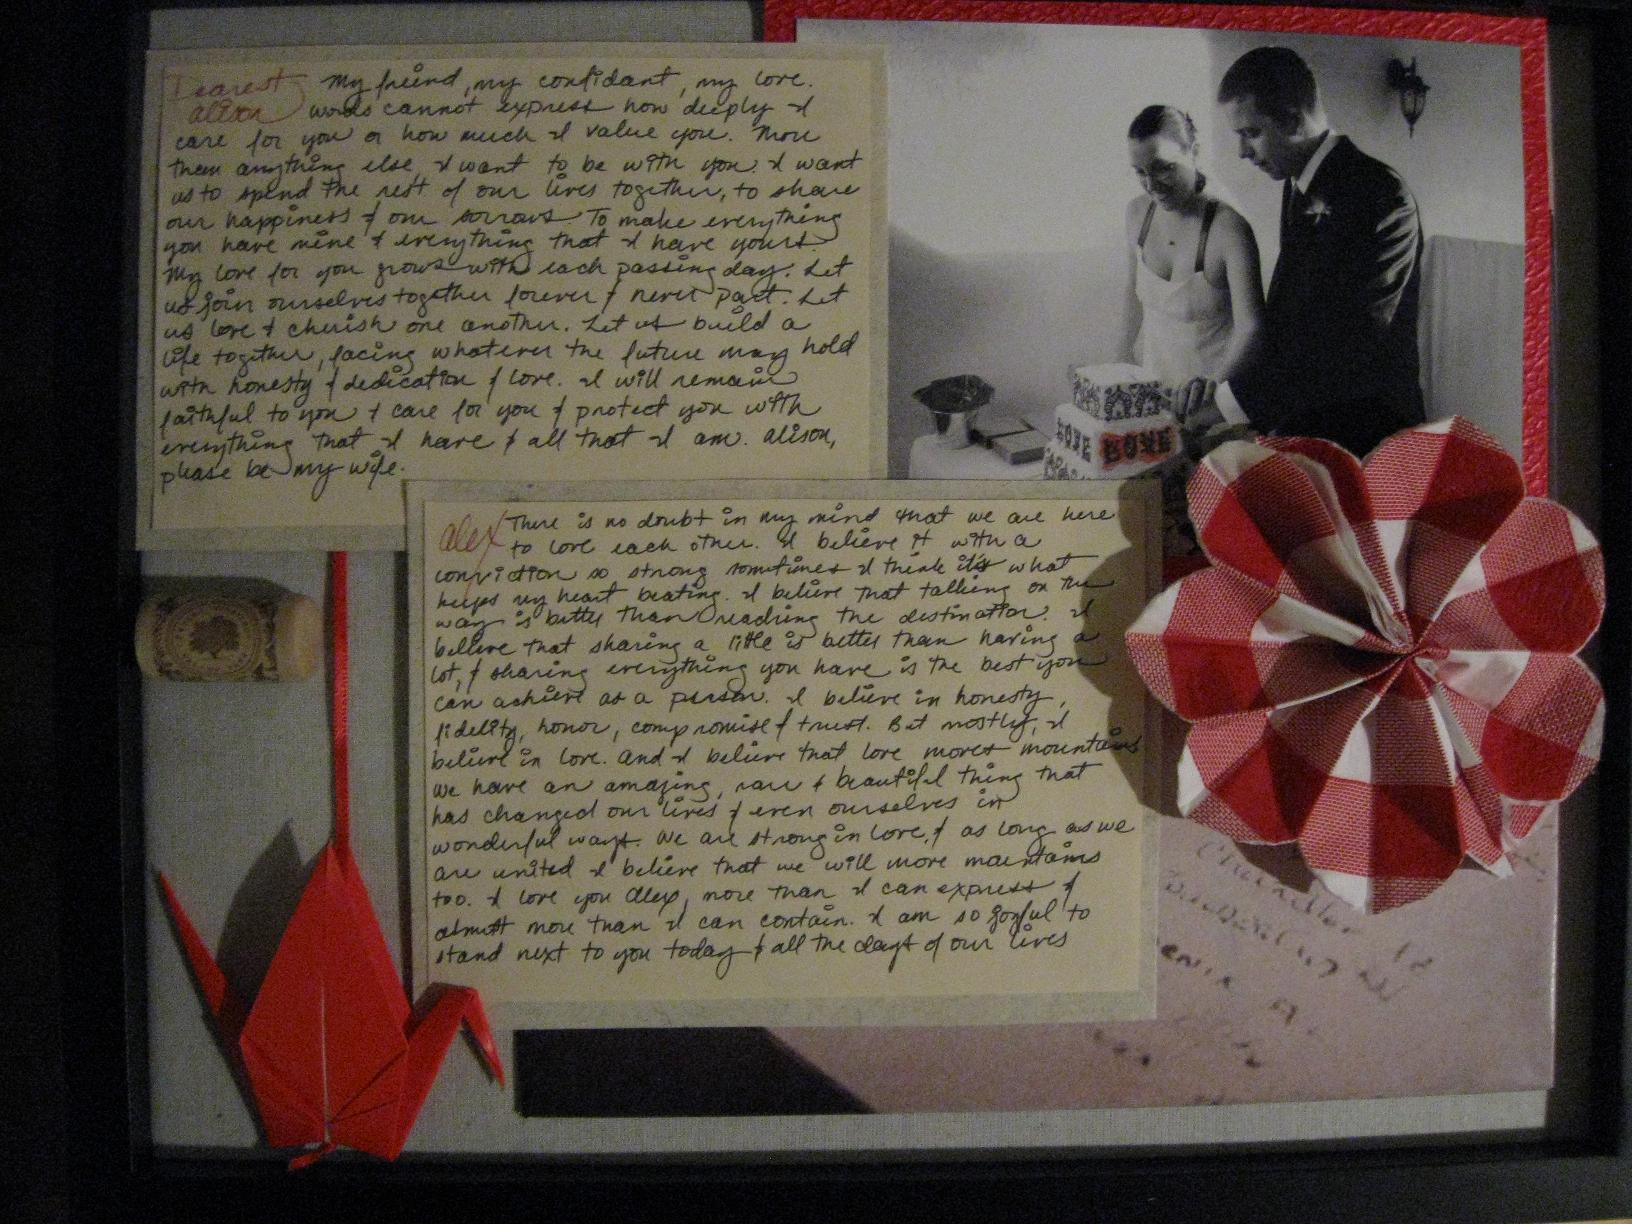 Dearest My friend, my confidant, my love.
Alison words cannot express how deeply I
care for you or how much I value you. More
than anything else, I want to be with you. I want
us to spend the rest of our lives together, to share
our happiness & our sorrows To make everything
you have mine & everything that I have yours.
My love for you grows with each passing day. Let
us join ourselves together forever & never part. Let
us love & cherish one another. Let us build a
life together, facing whatever the future may hold
with honesty & dedication & love. I will remain
faithful to you & care for you & protect you with
everything that I have & all that I am. Alison,
please be my wife.
LOVE LOVE
Alex There is no doubt in my mind that we are here
to love each other. I believe it with a
conviction so strong sometimes I think it's what
keeps my heart beating. I believe that talking on the
way is better than reaching the destination. I
believe that sharing a little is better than having a
lot, & sharing everything you have is the best you
can achieve as a person. I believe in honesty,
fidelity, honor, compromise & trust. But mostly, I
believe in love. And I believe that love moves mountains
we have an amazing, rare & beautiful thing that
has changed our lives & even ourselves in
wonderful ways. We are strong in love, & as long as we
are united I believe that we will move mountains
too. I love you Alex, more than I can express &
almost more than I can contain. I am so joyful to
stand next to you today & all the days of our lives